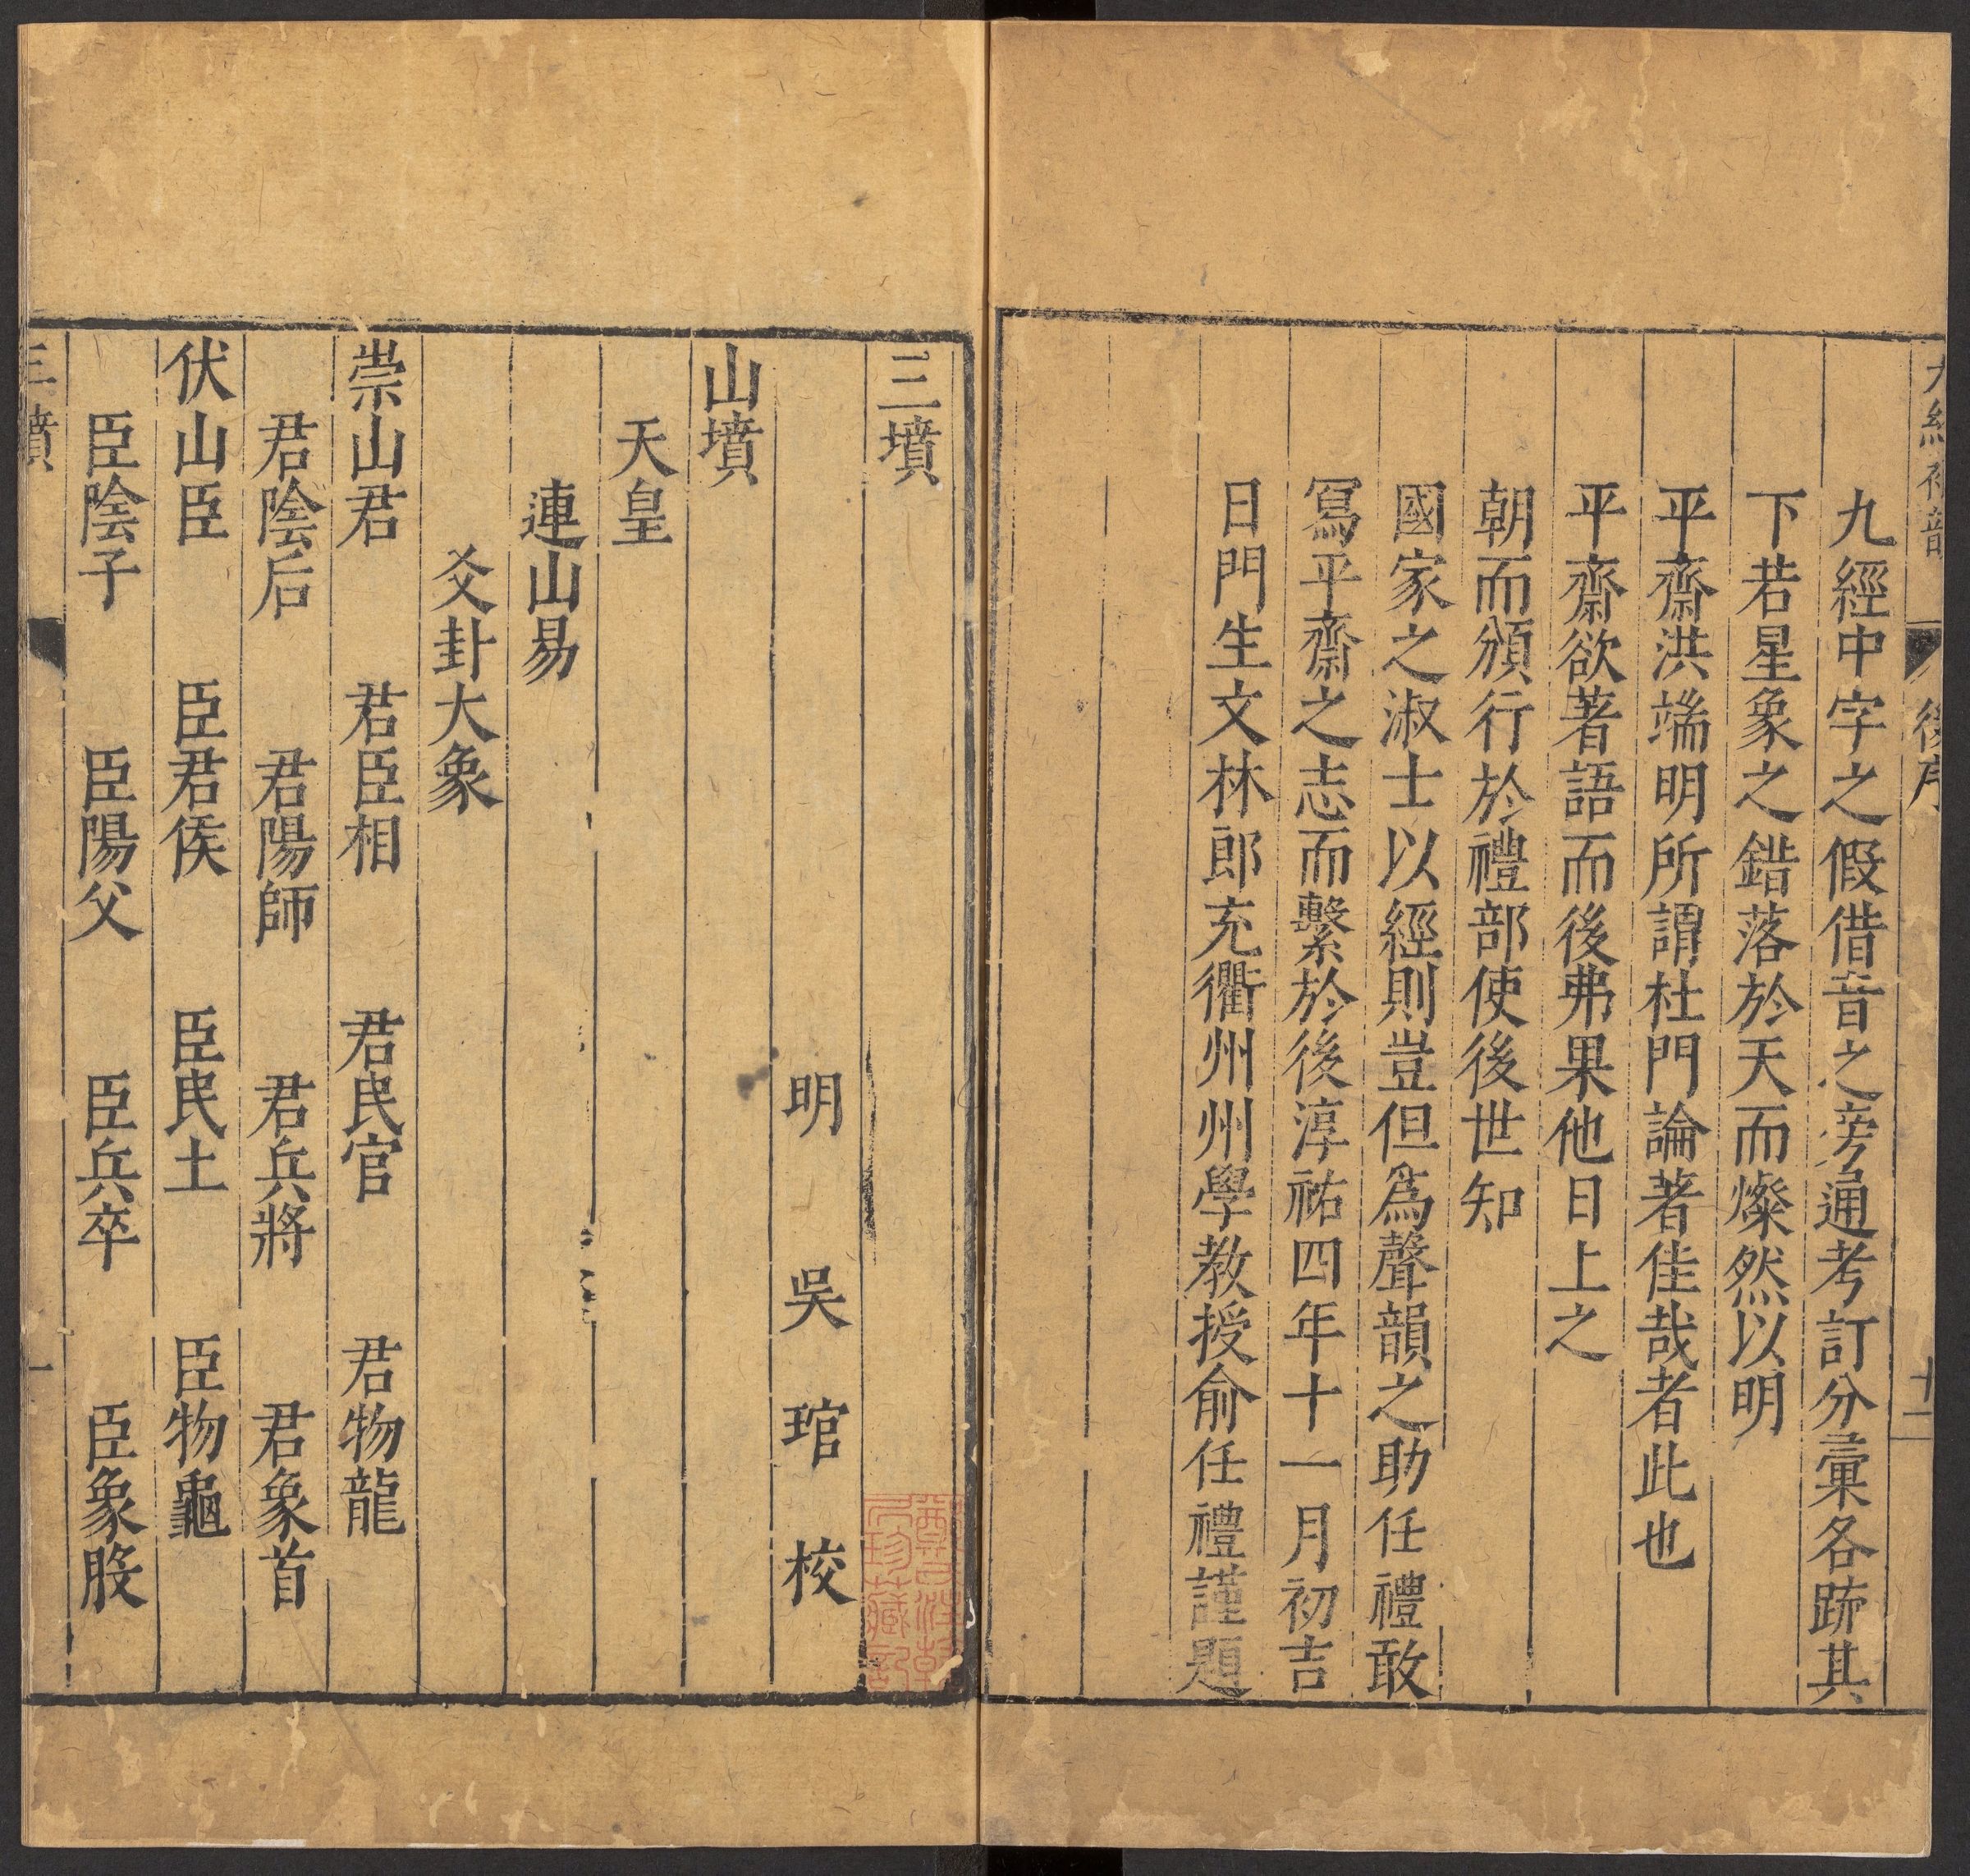 後序
十二
九經中字之假借音之旁通考訂分彙各跡其
下若星象之錯落於天而燦然以明
平齋洪端明所謂杜門論著佳哉者此也
平齋欲著語而後弗果他日上之
朝而頒行於禮部使後世知
國家之淑士以經則豈但爲聲韻之助任禮敢
冩平齋之志而繫於後淳祐四年十一月初吉
日門生文林郎充衢州州學教授俞任禮謹題
三墳
明 吳琯 校
山墳
天皇
連山易
爻卦大象
崇山君 君臣相 君民官 君物龍
君陰后 君陽師 君兵將 君象首
伏山臣 臣君侯 臣民士 臣物龜
臣陰子 臣陽父 臣兵卒 臣象股
三墳 一
珍藏